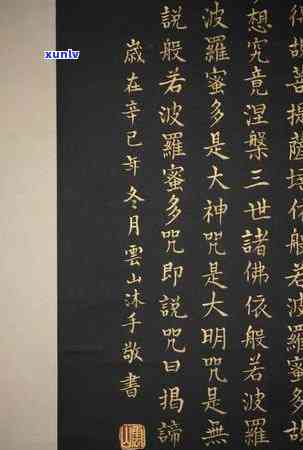 故菩提薩埵依般若波羅蜜多故
想究竟涅槃三世諸佛依般若波羅
波羅蜜多是大神咒是大明咒是無
說般若波羅蜜多咒即說咒曰揭諦
歲在辛巳年冬月雲山沐手敬書
xunlv